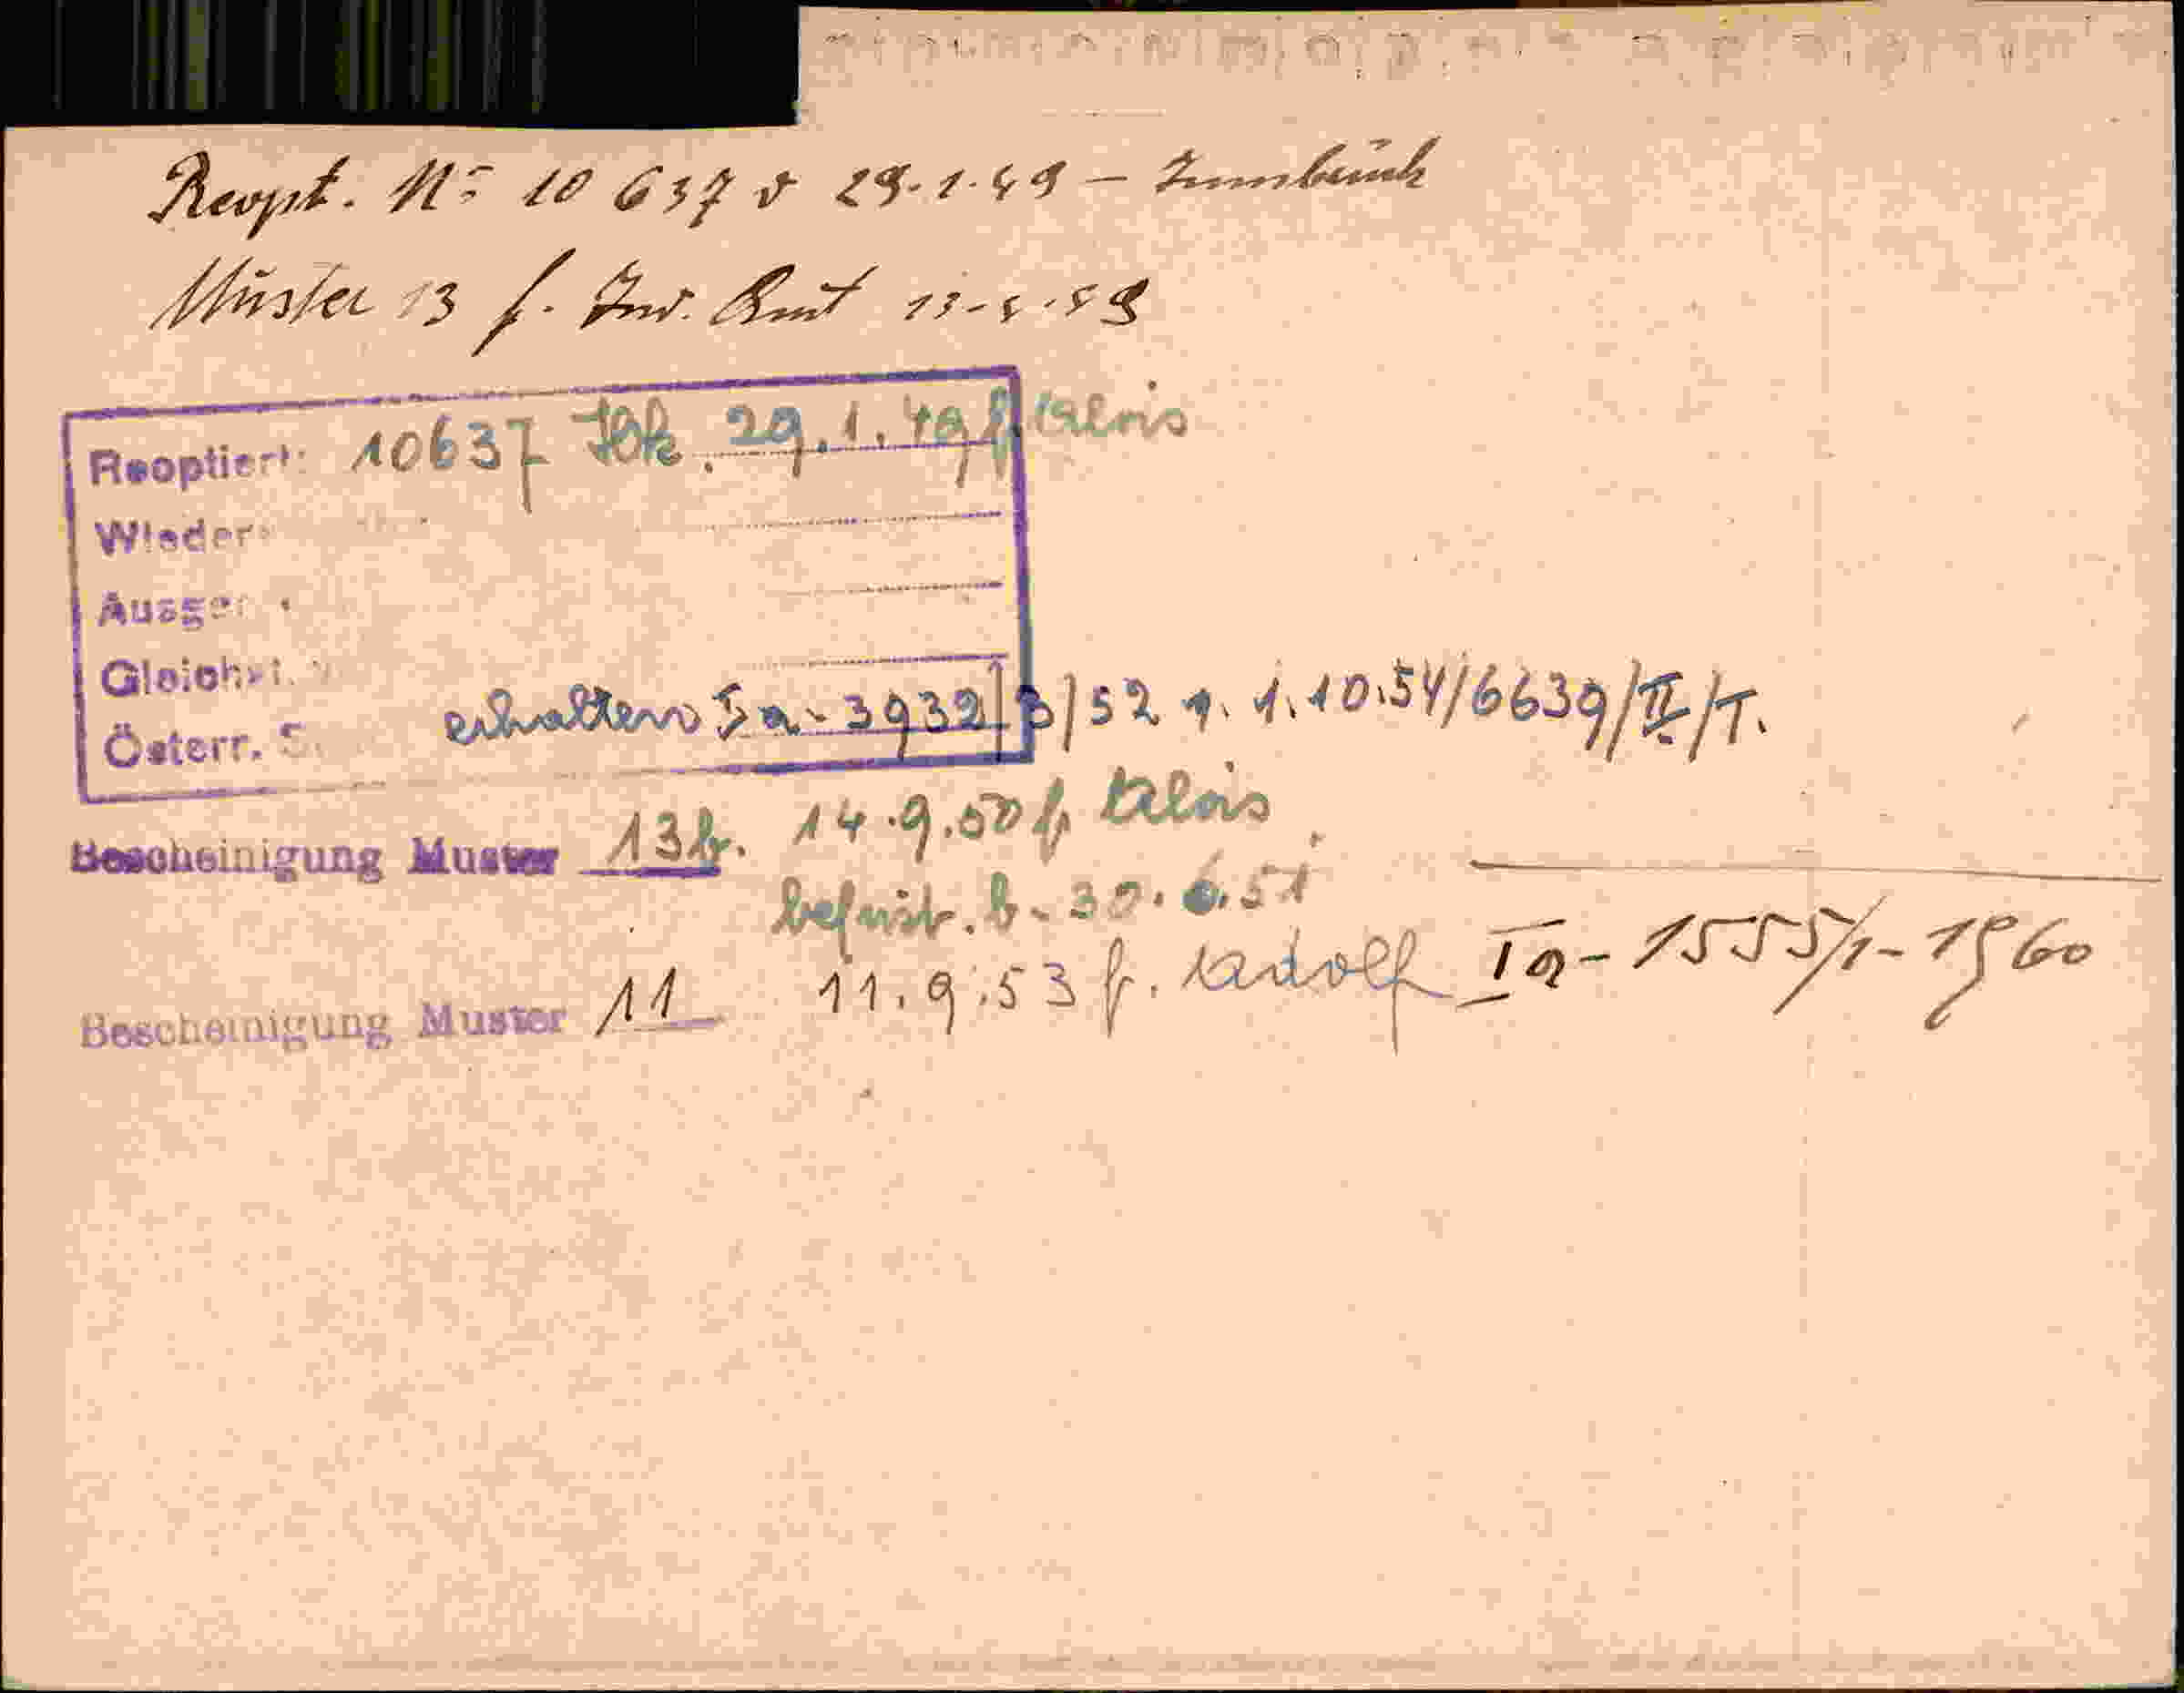 Reopt. No 10 637 v 29.1.49 – Innsbruck
Muster 13 f. Ind. Amt 13-5.59
Reoptiert: 10637 Ibk. 29.1.49 f. Alois
Wieder
Ausge
Gleich
Österr. S. erhalten Ia-3932/3/52 1.10.54/6639/II/T.
Bescheinigung Muster 13 b. 14.9.50 f. Alois
befrist. b. 30.6.51
Bescheinigung Muster 11 11.9.53 f. Adolf Ia-1555/1-1960